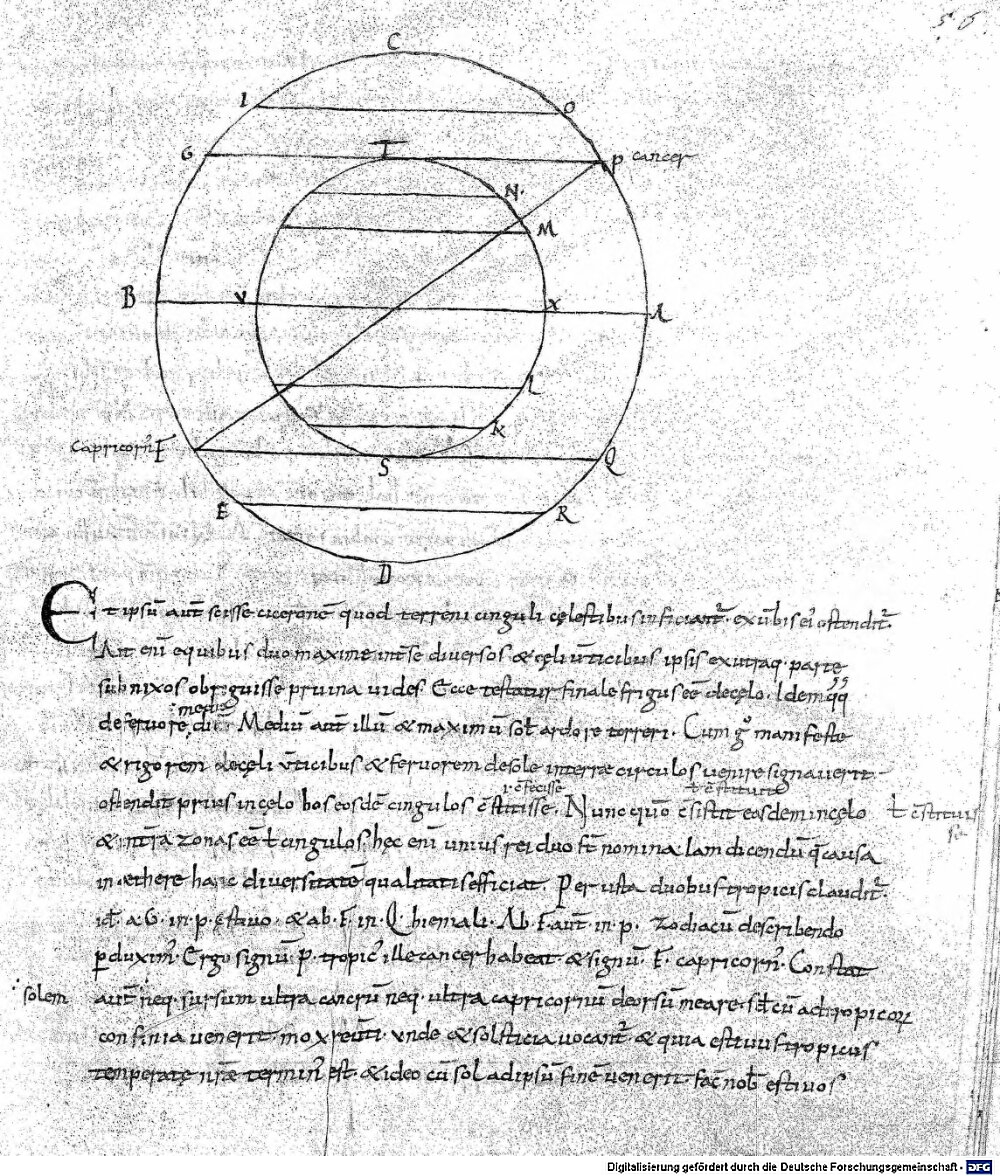 56.
C
I O
G T P cancer
N.
M
B V X A
L
K
capricorn̄ F S Q
E R
D
Et ipsū aut̄ scisse ciceronē quod terreni cinguli cęlestibus inficiant̄. ex ūbis ei ostendit̄.
Ait enī e quibus duo maxime int̄ se diversos & cęli v̄ticibus ipsis ex utraq. parte
subnixos obriguisse pruina uides. Ecce testatur finale frigus eē de cęlo. Idemqq
medio
de feruore dīc Mediū aut̄ illū & maximū sol̄ ardore torreri. Cum gͦ manifeste
& rigorem de cęli v̄ticibus & feruorem de sole in terrae circulos uenire signauerit.
l c̄fecisse ł c̄stituerit
ostendit prius in cęlo hos eosdē cingulos c̄stitisse. Nunc quō c̄sistit eosdem in cęlo
& intr̄a zonas eē ł cingulos hęc enī unius rei duo st̄ nomina Iam dicendū q̄ causa
in ęthere hanc diuersitatē qualitatis efficiat. Per usta duobus tropicis claudit̄.
id̄. a G. in. p. ęstiuo. & ab. F. in. Q. hiemali. Ab. F. aut̄. in. p. zodiacū describendo
ꝑduxim̄. Ergo signū. P. tropic̄ ille cancer habeat. & signū. F. capricorn̄. Constat
solem aut̄ neq. sursum ultra cancrū neq. ultra capricornū deorsū meare. sed̄ cū ad tropicoꝝ
confinia uenerit. mox reūti. vnde & solsticia uocant̄. & quia estiuus tropicus
temperatę nr̄ae termin̄ est. & ideo cū sol ad ipsū finē uenerit. fac̄ nob̄ estiuos
Digitalisierung gefördert durch die Deutsche Forschungsgemeinschaft - DFG